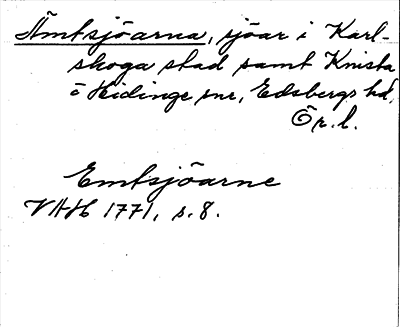 Ämtsjöarna, sjöar i Karl-
skoga stad samt Knista
o Hidinge snr, Edsbergs hd,
Ör. l.
Emtsjöarne
VAH 1771, s. 8.